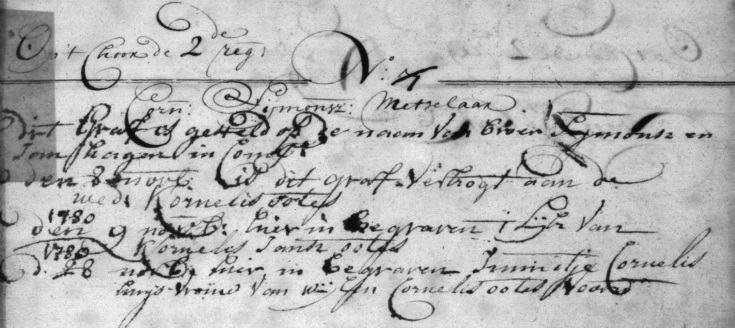 Op t Choor de 2de reg:
No: 4
Corn: Sijmonsz: Metselaar
dit Graf is gesteld op de naam van Sijmonsz en
Jan hagen in Comp
den 8 novb: is dit graf verkogt aan de
wed: Kornelis ootes
1780
den 9 novb: hier in begraven 1 lijk van
Kornelis Jansz ootes
1786
d. 28 novb: hier in begraven Cornelis
huijsvrouw van wijlen Cornelis ootes